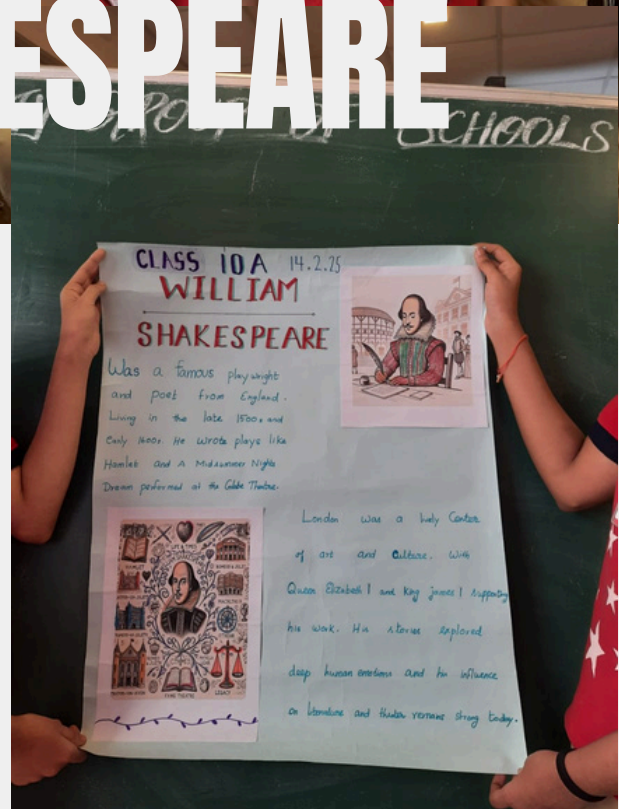 ESPEARE
GROUP OF SCHOOLS
CLASS 10A 14.2.25
WILLIAM
SHAKESPEARE
Was a famous playwright
and poet from England.
Living in the late 1500s and
Early 1600s. He wrote plays like
Hamlet and A Midsummer Nights
Dream performed at the Globe Theatre.
London was a lively Center
of art and Culture. With
Queen Elizabeth I and King James I supporting
his work. His stories explored
deep human emotions and his influence
on literature and theater remains strong today.
HAMLET
LEGACY